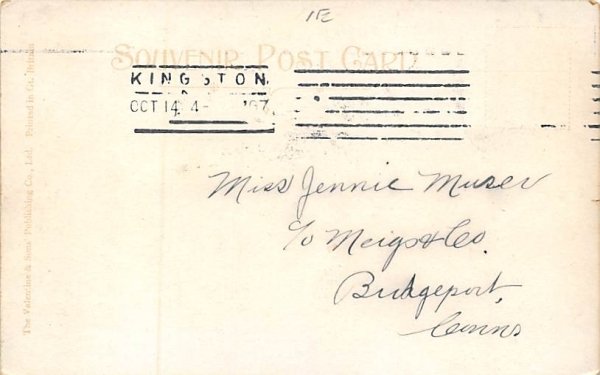 1E
SOUVENIR POST CARD
KINGSTON
OCT 14 4- '07
Miss Jennie Muser
c/o Meigs & Co.
Bridgeport,
Conns
The Valentine & Sons' Publishing Co., Ltd. Printed in Gt. Britain